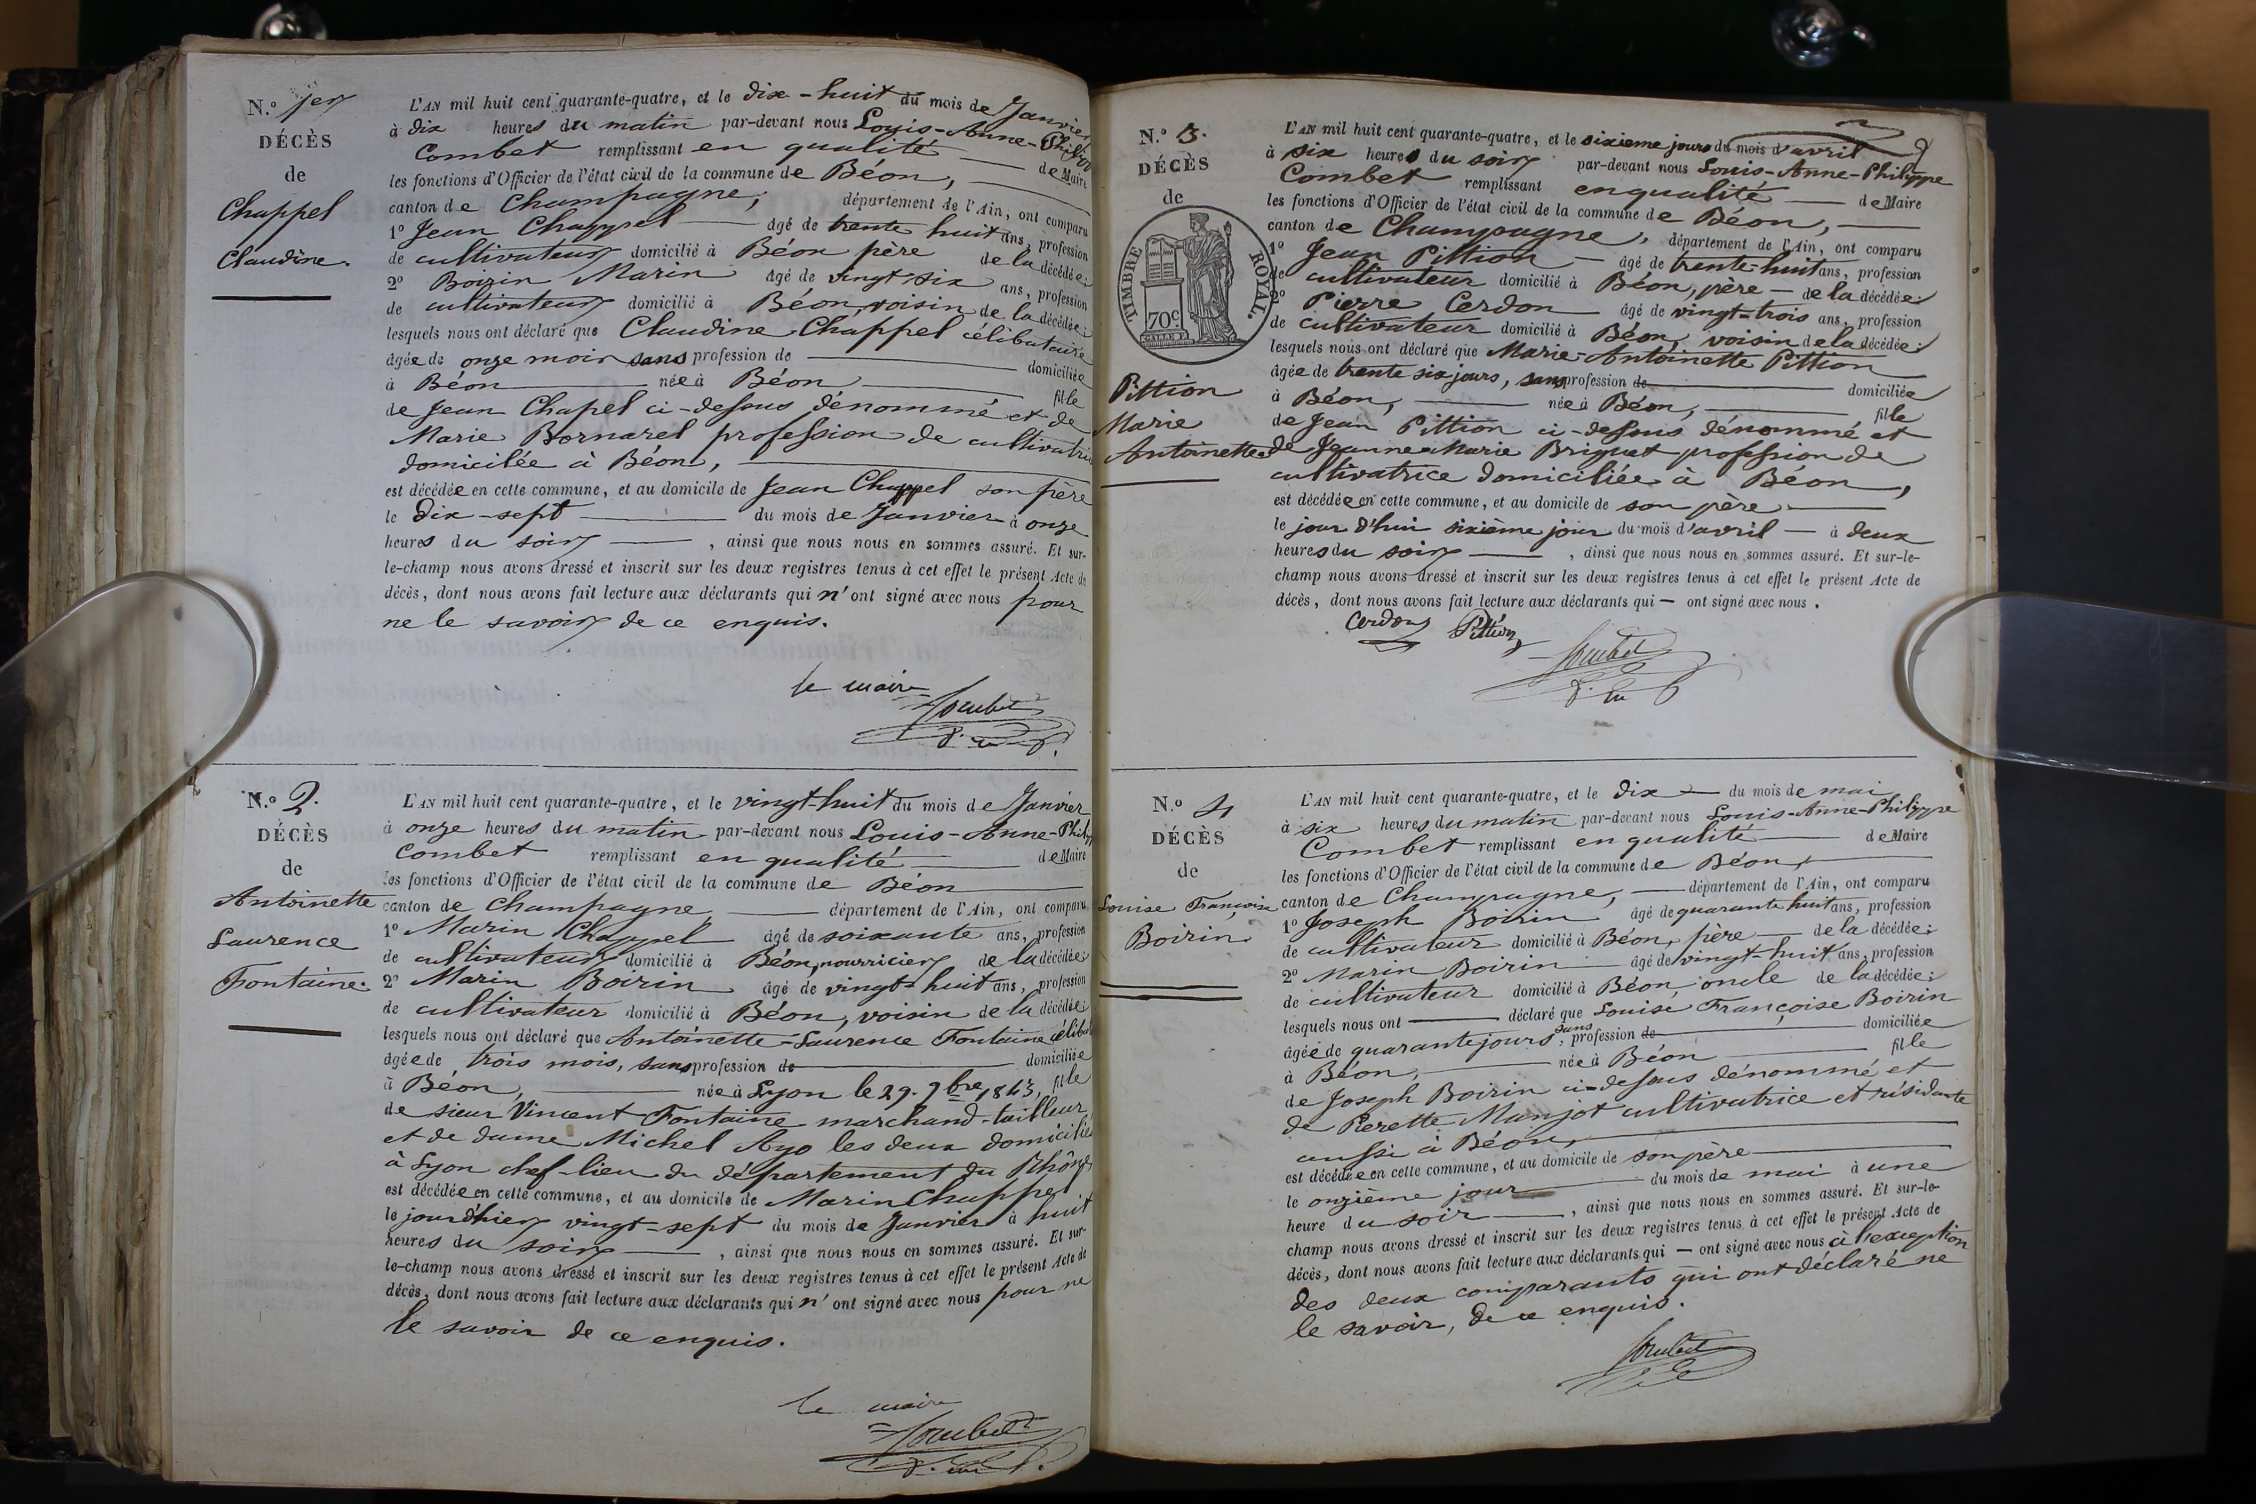 N.o 1er
DÉCÈS
de
Chappel
Claudine.
L'AN mil huit cent quarante-quatre, et le dix-huit du mois de Janvier
à dix heures du matin par-devant nous Louis-Anne-Philippe
Combet remplissant en qualité de Maire
les fonctions d'Officier de l'état civil de la commune de Béon,
canton de Champagne, département de l'Ain, ont comparu
1o Jean Chappel âgé de trente huit ans, profession
de cultivateur domicilié à Béon père de la décédée;
2o Boirin Marin âgé de vingt six ans, profession
de cultivateur domicilié à Béon, voisin de la décédée;
lesquels nous ont déclaré que Claudine Chappel célibataire
âgée de onze mois sans profession de domiciliée
à Béon née à Béon fille
de Jean Chapel ci-dessus dénommé et de
Marie Bornarel profession de cultivatrice
domicilée à Béon,
est décédée en cette commune, et au domicile de Jean Chappel son père
le dix-sept du mois de Janvier à onze
heures du soir, ainsi que nous nous en sommes assuré. Et sur-
le-champ nous avons dressé et inscrit sur les deux registres tenus à cet effet le présent Acte de
décès, dont nous avons fait lecture aux déclarants qui n'ont signé avec nous pour
ne le savoir de ce enquis.
le maire
Combet
N.o 2.
DÉCÈS
de
Antoinette
Laurence
Fontaine.
L'AN mil huit cent quarante-quatre, et le vingt-huit du mois de Janvier
à onze heures du matin par-devant nous Louis-Anne-Philippe
Combet remplissant en qualité de Maire
les fonctions d'Officier de l'état civil de la commune de Béon
canton de Champagne, département de l'Ain, ont comparu
1o Marin Chappel âgé de soixante ans, profession
de cultivateur domicilié à Béon, nourricier de la décédée;
2o Marin Boirin âgé de vingt-huit ans, profession
de cultivateur domicilié à Béon, voisin de la décédée;
lesquels nous ont déclaré que Antoinette-Laurence Fontaine célibat
âgée de trois mois, sans profession de domiciliée
à Béon, née à Lyon le 29. 7bre 1843, fille
de sieur Vincent Fontaine marchand-tailleur
et de dame Michel Ayo les deux domiciliés
à Lyon chef-lieu du département du Rhône,
est décédée en cette commune, et au domicile de Marin Chappel,
le jour d'hier vingt-sept du mois de Janvier à huit
heures du soir, ainsi que nous nous en sommes assuré. Et sur-
le-champ nous avons dressé et inscrit sur les deux registres tenus à cet effet le présent Acte de
décès, dont nous avons fait lecture aux déclarants qui n'ont signé avec nous pour ne
le savoir de ce enquis.
le maire
Combet
N.o 3.
DÉCÈS
de
TIMBRE ROYAL.
70c
GALLE
Pittion
Marie
Antoinette
L'AN mil huit cent quarante-quatre, et le sixième jours du mois d'avril
à six heures du soir par-devant nous Louis-Anne-Philippe
Combet remplissant en qualité de Maire
les fonctions d'Officier de l'état civil de la commune de Béon,
canton de Champagne, département de l'Ain, ont comparu
1o Jean Pittion âgé de trente-huit ans, profession
de cultivateur domicilié à Béon, père de la décédée;
2o Pierre Cerdon âgé de vingt-trois ans, profession
de cultivateur domicilié à Béon, voisin de la décédée;
lesquels nous ont déclaré que Marie-Antoinette Pittion
âgée de trente six jours, sans profession de domiciliée
à Béon, née à Béon, fille
de Jean Pittion ci-dessus dénommé et
de Jeanne-Marie Briguet profession de
cultivatrice domiciliée à Béon,
est décédée en cette commune, et au domicile de son père
le jour d'hui sixième jour du mois d'avril à deux
heures du soir, ainsi que nous nous en sommes assuré. Et sur-le-
champ nous avons dressé et inscrit sur les deux registres tenus à cet effet le présent Acte de
décès, dont nous avons fait lecture aux déclarants qui — ont signé avec nous.
Cerdon Pittion
Combet
N.o 4
DÉCÈS
de
Louise Françoise
Boirin
L'AN mil huit cent quarante-quatre, et le dix du mois de mai
à six heures du matin par-devant nous Louis-Anne-Philippe
Combet remplissant en qualité de Maire
les fonctions d'Officier de l'état civil de la commune de Béon,
canton de Champagne, département de l'Ain, ont comparu
1o Joseph Boirin âgé de quarante huit ans, profession
de cultivateur domicilié à Béon, père de la décédée;
2o Marin Boirin âgé de vingt-huit ans, profession
de cultivateur domicilié à Béon, oncle de la décédée;
lesquels nous ont déclaré que Louise Françoise Boirin
âgée de quarante jours, sans profession de domiciliée
à Béon, née à Béon fille
de Joseph Boirin ci-dessus dénommé et
de Perette Munjot cultivatrice et résidante
aussi à Béon,
est décédée en cette commune, et au domicile de son père
le onzième jour du mois de mai à une
heure du soir, ainsi que nous nous en sommes assuré. Et sur-le-
champ nous avons dressé et inscrit sur les deux registres tenus à cet effet le présent Acte de
décès, dont nous avons fait lecture aux déclarants qui — ont signé avec nous à l'exception
des deux comparants qui ont déclaré ne
le savoir, de ce enquis.
Combet